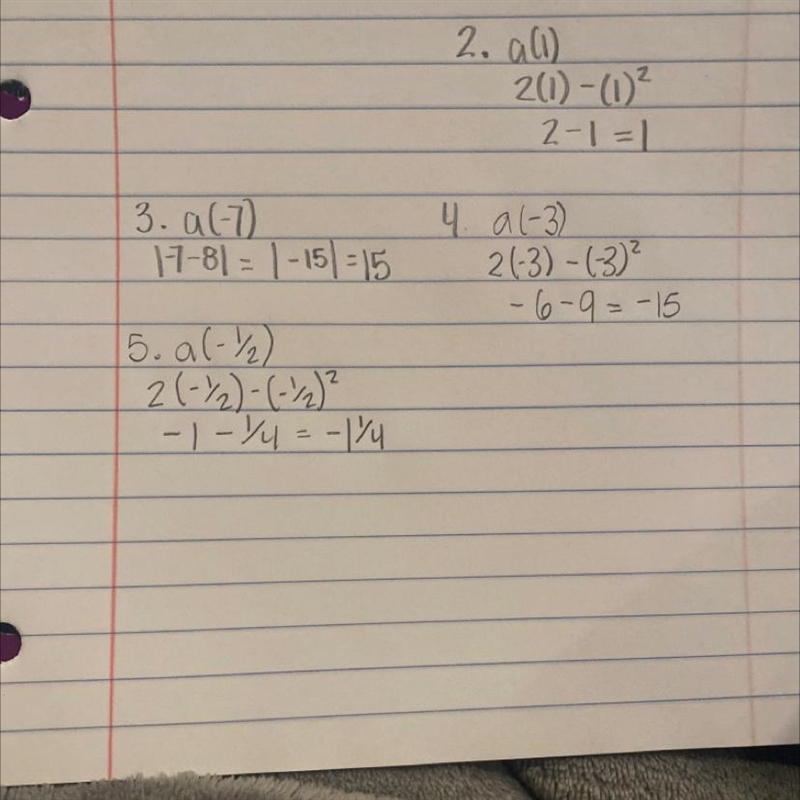 2. a(1)
2(1) - (1)²
2 - 1 = 1
3. a(-7)
|-7-8| = |-15| = 15
4. a(-3)
2(-3) - (-3)²
-6 - 9 = -15
5. a(-1/2)
2(-1/2) - (-1/2)²
-1 - 1/4 = -1 1/4